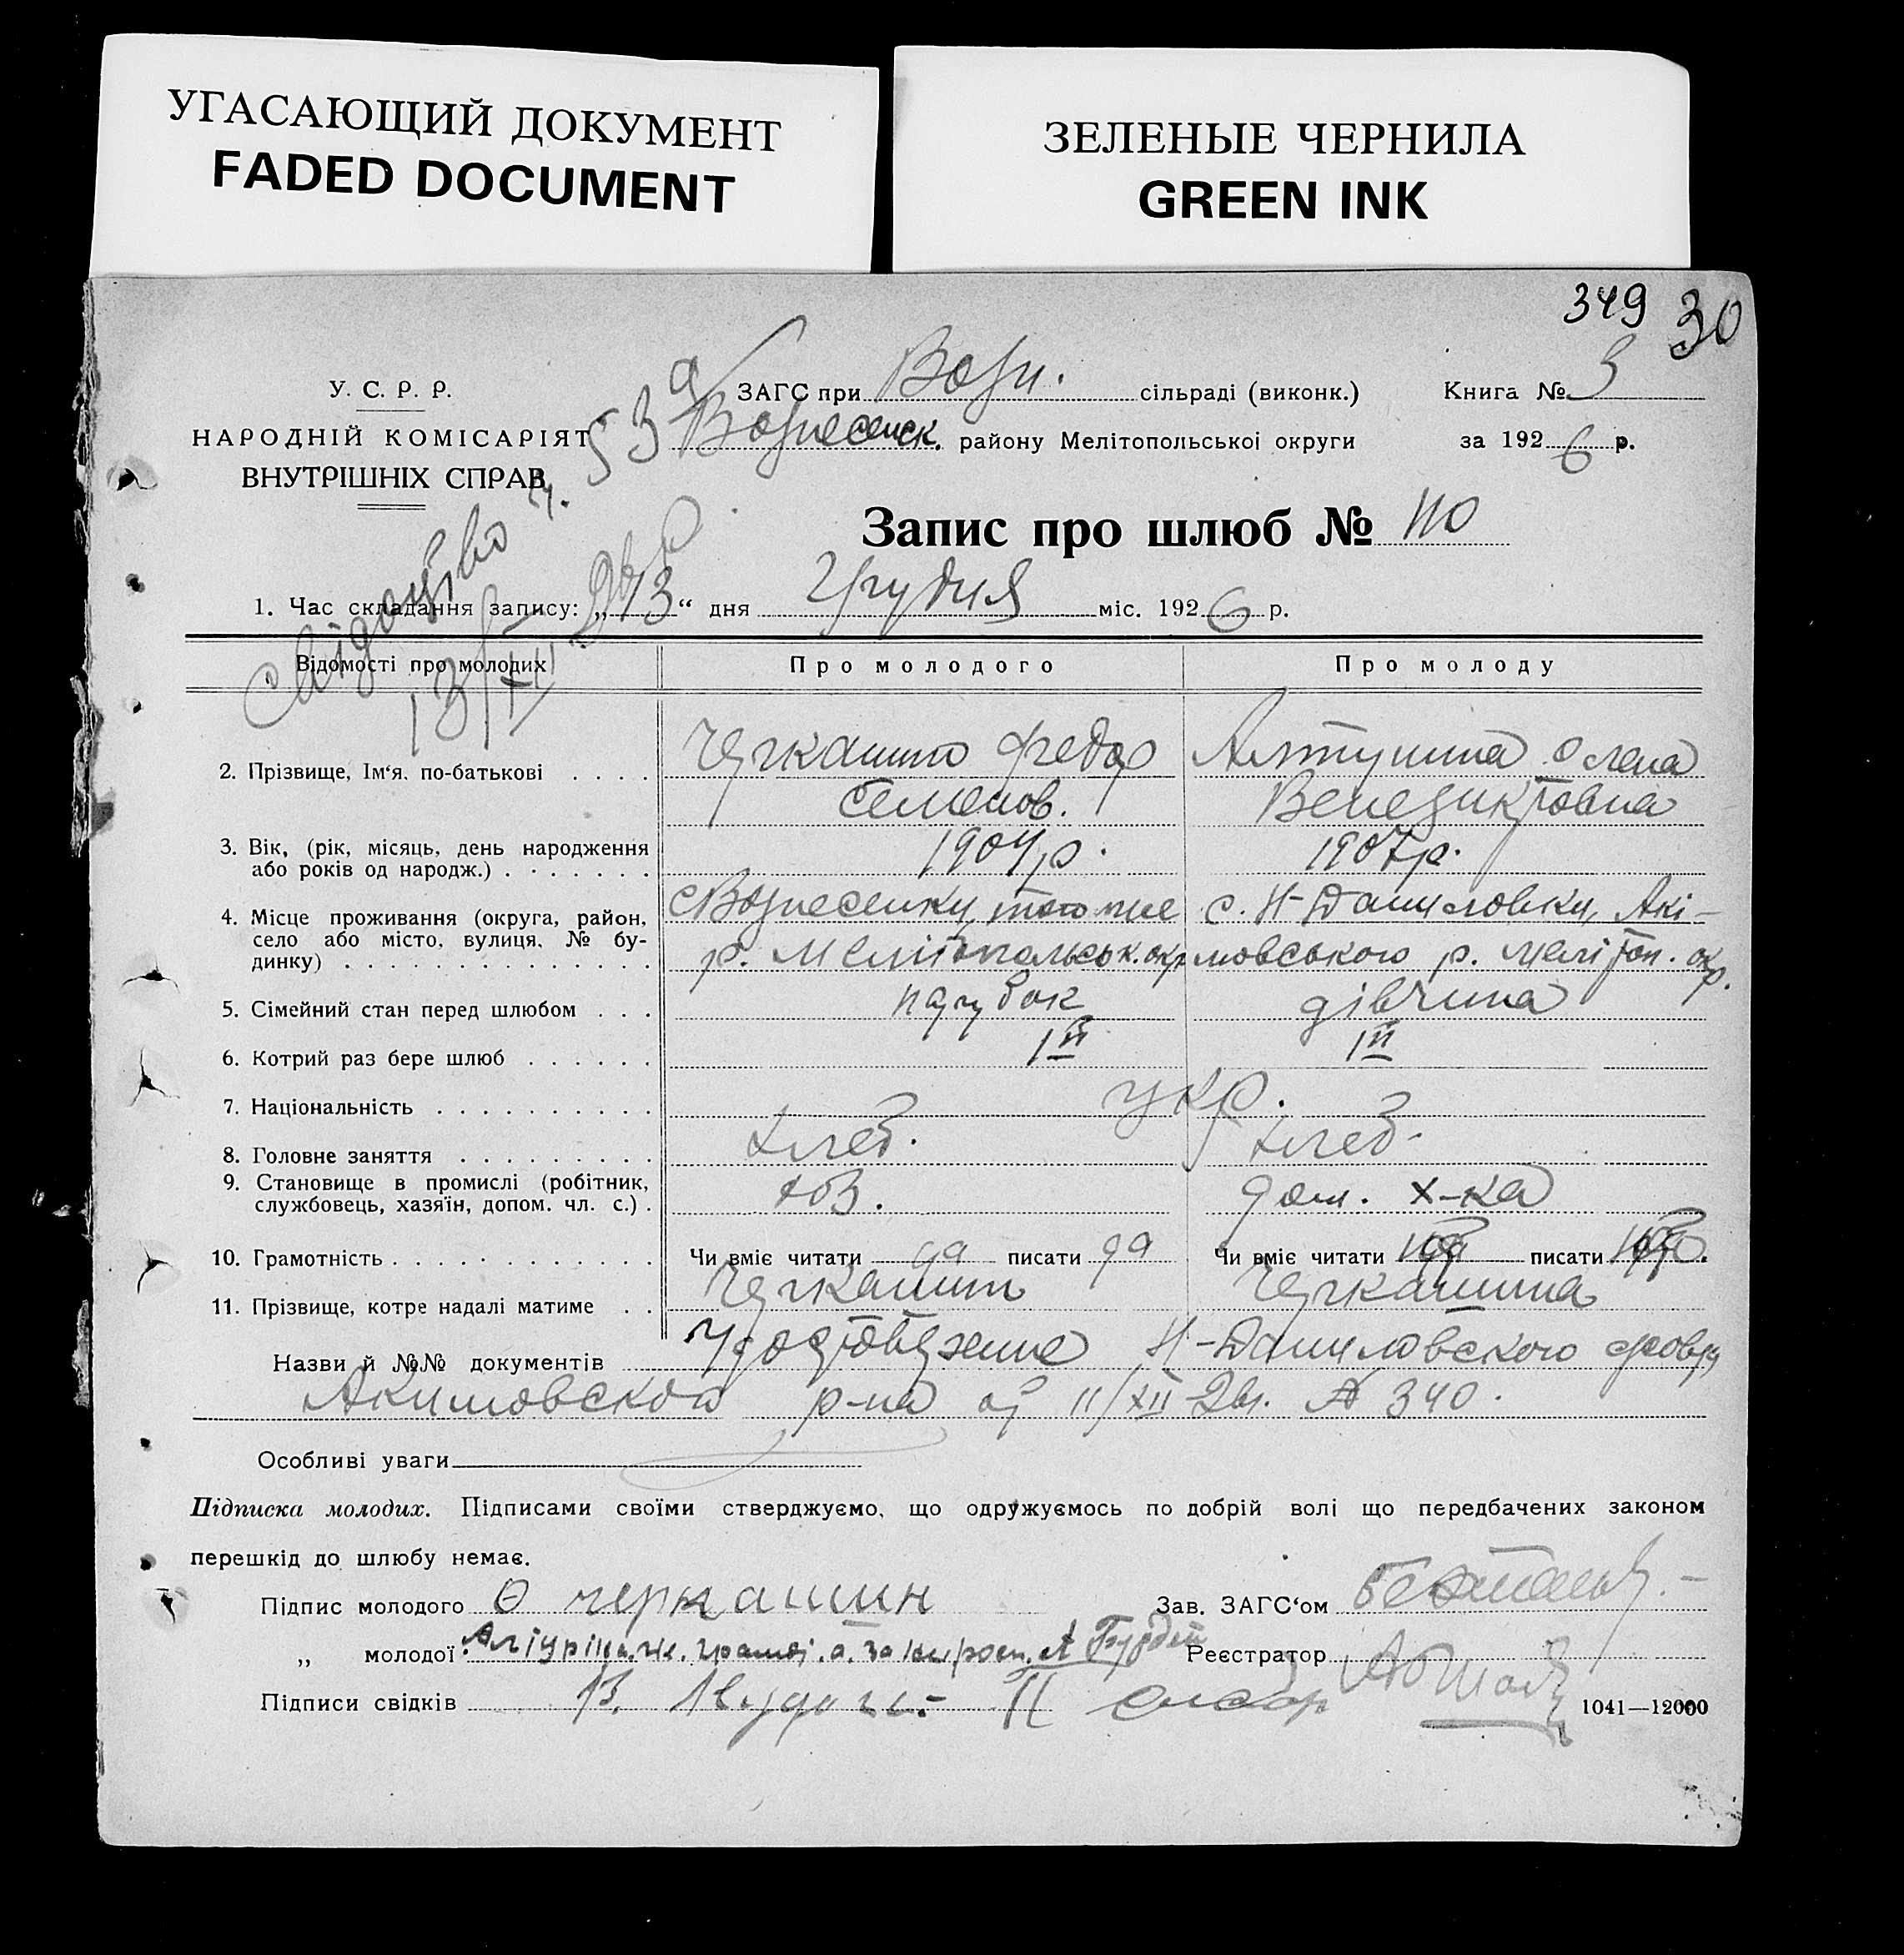 УГАСАЮЩИЙ ДОКУМЕНТ
FADED DOCUMENT
ЗЕЛЕНЫЕ ЧЕРНИЛА
GREEN INK
349 30
У. С. Р. Р.
НАРОДНІЙ КОМІСАРІЯТ
ВНУТРІШНІХ СПРАВ
ЗАГС при Возн. сільраді (виконк.) Книга № 3
Вознесенск. району Мелітопольської округи за 1926 р.
Свідоцтво ч. 53
13/XII
Запис про шлюб № 110
1. Час складання запису: „13“ дня Грудня міс. 1926 р.
Відомості про молодих Про молодого Про молоду
2. Прізвище, Ім‘я, по-батькові Черкашин Федор Алтунина Олена
Семенов. Венедиктовна
3. Вік, (рік, місяць, день народження або років од народж.) 1904 р. 1907 р.
4. Місце проживання (округа, район, село або місто, вулиця, № будинку) с Вознесенки, того же с. Н-Даниловки, Акі-
р. Мелітопольськ. окр мовського р. Меліто́п. окр.
5. Сімейний стан перед шлюбом парубок дівчина
6. Котрий раз бере шлюб 1й 1й
7. Національність укр.
8. Головне заняття хлеб. хлеб.
9. Становище в промислі (робітник, службовець, хазяїн, допом. чл. с.) хоз. дом. х-ка
10. Грамотність Чи вміє читати да писати да Чи вміє читати писати
11. Прізвище, котре надалі матиме Черкашин Черкашина
Назви й №№ документів Удостовѣрение Н-Даниловского
Акимовского р-на от 11/XII 26г. № 340.
Особливі уваги
Підписка молодих. Підписами своїми стверджуємо, що одружуємось по добрій волі що передбачених законом
перешкід до шлюбу немає.
Підпис молодого Ѳ черкашин Зав. ЗАГС‘ом
„ молодої: Реєстратор
Підписи свідків
1041—12000